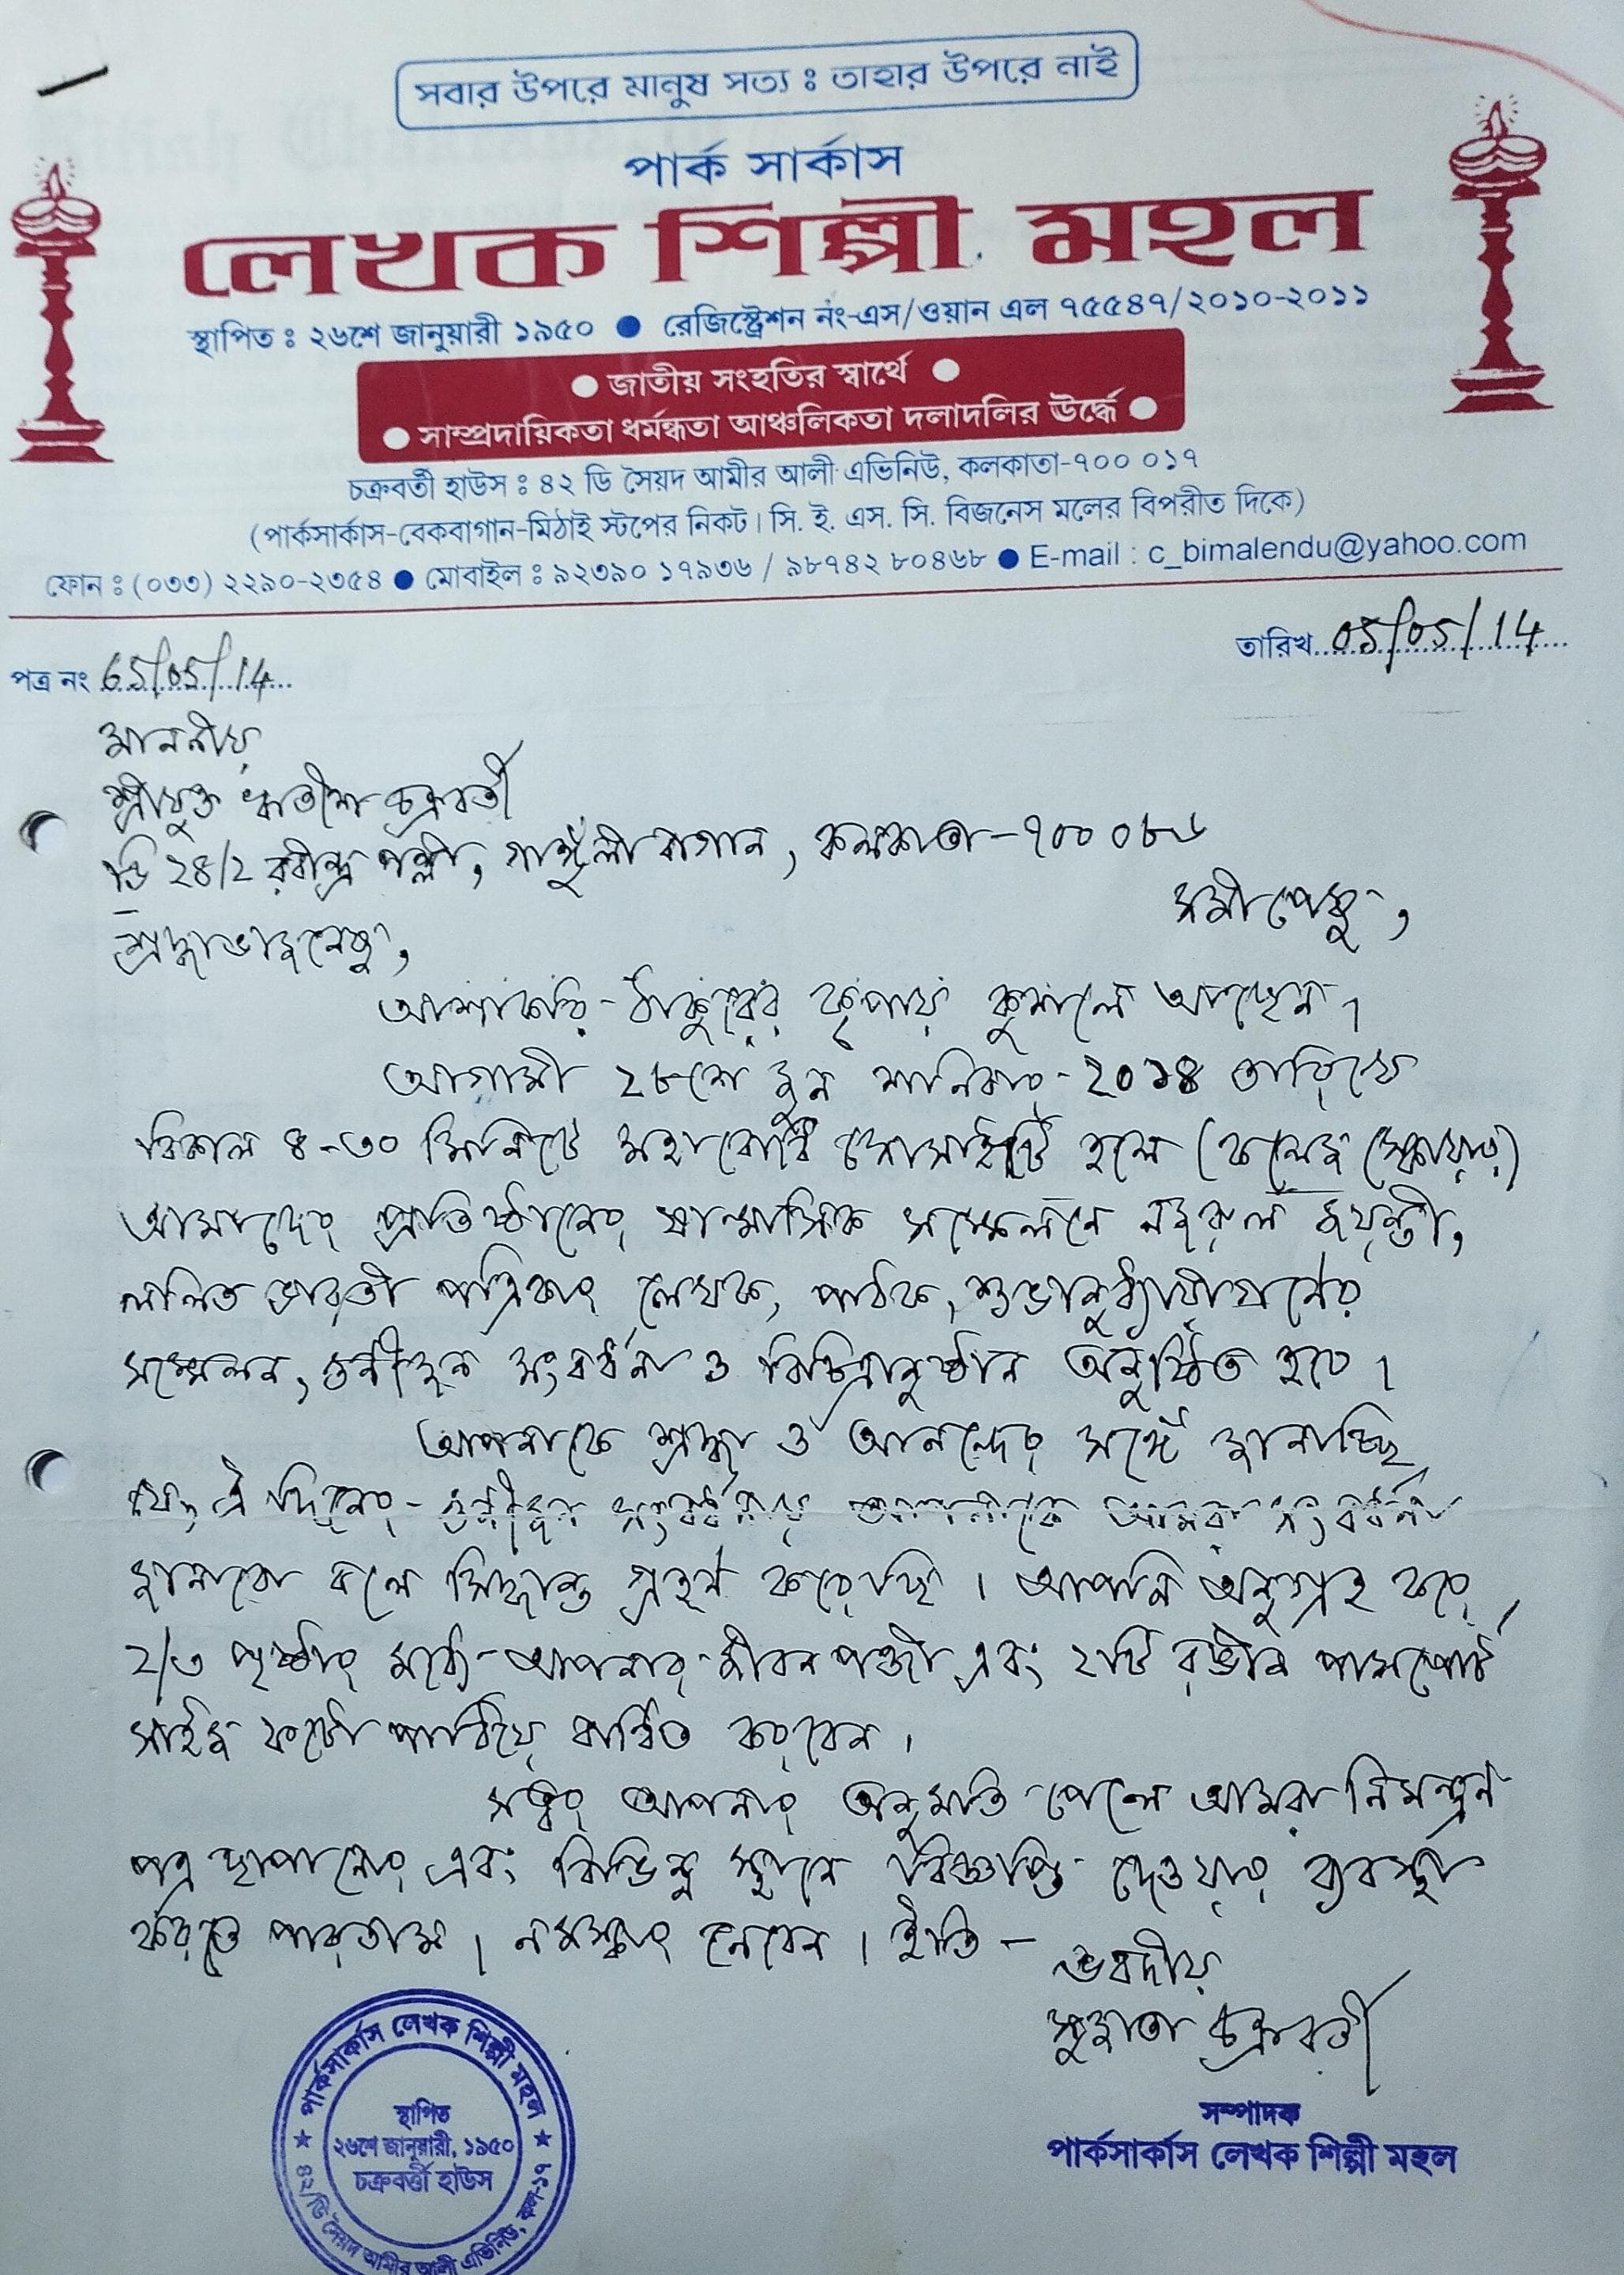 সবার উপরে মানুষ সত্য ঃ তাহার উপরে নাই
পার্ক সার্কাস
লেখক শিল্পী মহল
স্থাপিত ঃ ২৬শে জানুয়ারী ১৯৫০ ● রেজিস্ট্রেশন নং-এস/ওয়ান এল ৭৫৫৪৭/২০১০-২০১১
● জাতীয় সংহতির স্বার্থে ●
● সাম্প্রদায়িকতা ধর্মন্ধতা আঞ্চলিকতা দলাদলির ঊর্দ্ধে ●
চক্রবর্তী হাউস ঃ ৪২ ডি সৈয়দ আমীর আলী এভিনিউ, কলকাতা-৭০০ ০১৭
(পার্কসার্কাস-বেকবাগান-মিঠাই স্টপের নিকট। সি. ই. এস. সি. বিজনেস মলের বিপরীত দিকে)
ফোন ঃ (০৩৩) ২২৯০-২৩৫৪ ● মোবাইল ঃ ৯২৩৯০ ১৭৯৩৬ / ৯৮৭৪২ ৮০৪৬৮ ● E-mail : c_bimalendu@yahoo.com
তারিখ 05/05/14
পত্র নং 65/05/14
মাননীয়
শ্রীযুক্ত চক্রবর্তী
ডি ২৪/২ রবীন্দ্র পল্লী, গাঙ্গুলী বাগান, কলকাতা-৭০০ ০৮৬
সমীপেষু,
শ্রদ্ধাভাজনেষু,
আশাকরি-ঠাকুরের কৃপায় কুশলে আছেন।
আগামী ২৮শে জুন শনিবার-২০১৪ তারিখে
বিকাল ৪-৩০ মিনিটে মহাবোধি সোসাইটি হলে (কলেজ স্কোয়ার)
আমাদের প্রতিষ্ঠানের ষান্মাসিক সম্মেলনে নজরুল জয়ন্তী,
ললিত ভারতী পত্রিকার লেখক, পাঠক, শুভানুধ্যায়ীগণের
সম্মেলন, গুনীজন সংবর্ধনা ও বিচিত্রানুষ্ঠান অনুষ্ঠিত হবে।
আপনাকে শ্রদ্ধা ও আনন্দের সঙ্গে জানাচ্ছি
যে, ঐ দিনের-গুনীজন সংবর্ধনায় আপনাকে আমরা সংবর্ধনা
জানাবো বলে সিদ্ধান্ত গ্রহন করেছি। আপনি অনুগ্রহ করে,
২/৩ পৃষ্ঠার মধ্যে-আপনার-জীবনপঞ্জী এবং ২টি রঙীন পাসপোর্ট
সাইজ ফটো পাঠিয়ে বাধিত করবেন।
সত্বর আপনার অনুমতি পেলে আমরা নিমন্ত্রন
পত্র ছাপানোর এবং বিভিন্ন স্থানে বিজ্ঞপ্তি দেওয়ার ব্যবস্থা
করতে পারতাম। নমস্কার নেবেন। ইতি —
ভবদীয়
সুজাতা চক্রবর্তী
সম্পাদক
পার্কসার্কাস লেখক শিল্পী মহল
পার্কসার্কাস লেখক শিল্পী মহল
স্থাপিত
২৬শে জানুয়ারী, ১৯৫০
চক্রবর্ত্তী হাউস
৪২/ডি সৈয়দ আমীর আলী এভিনিউ, কল-১৭